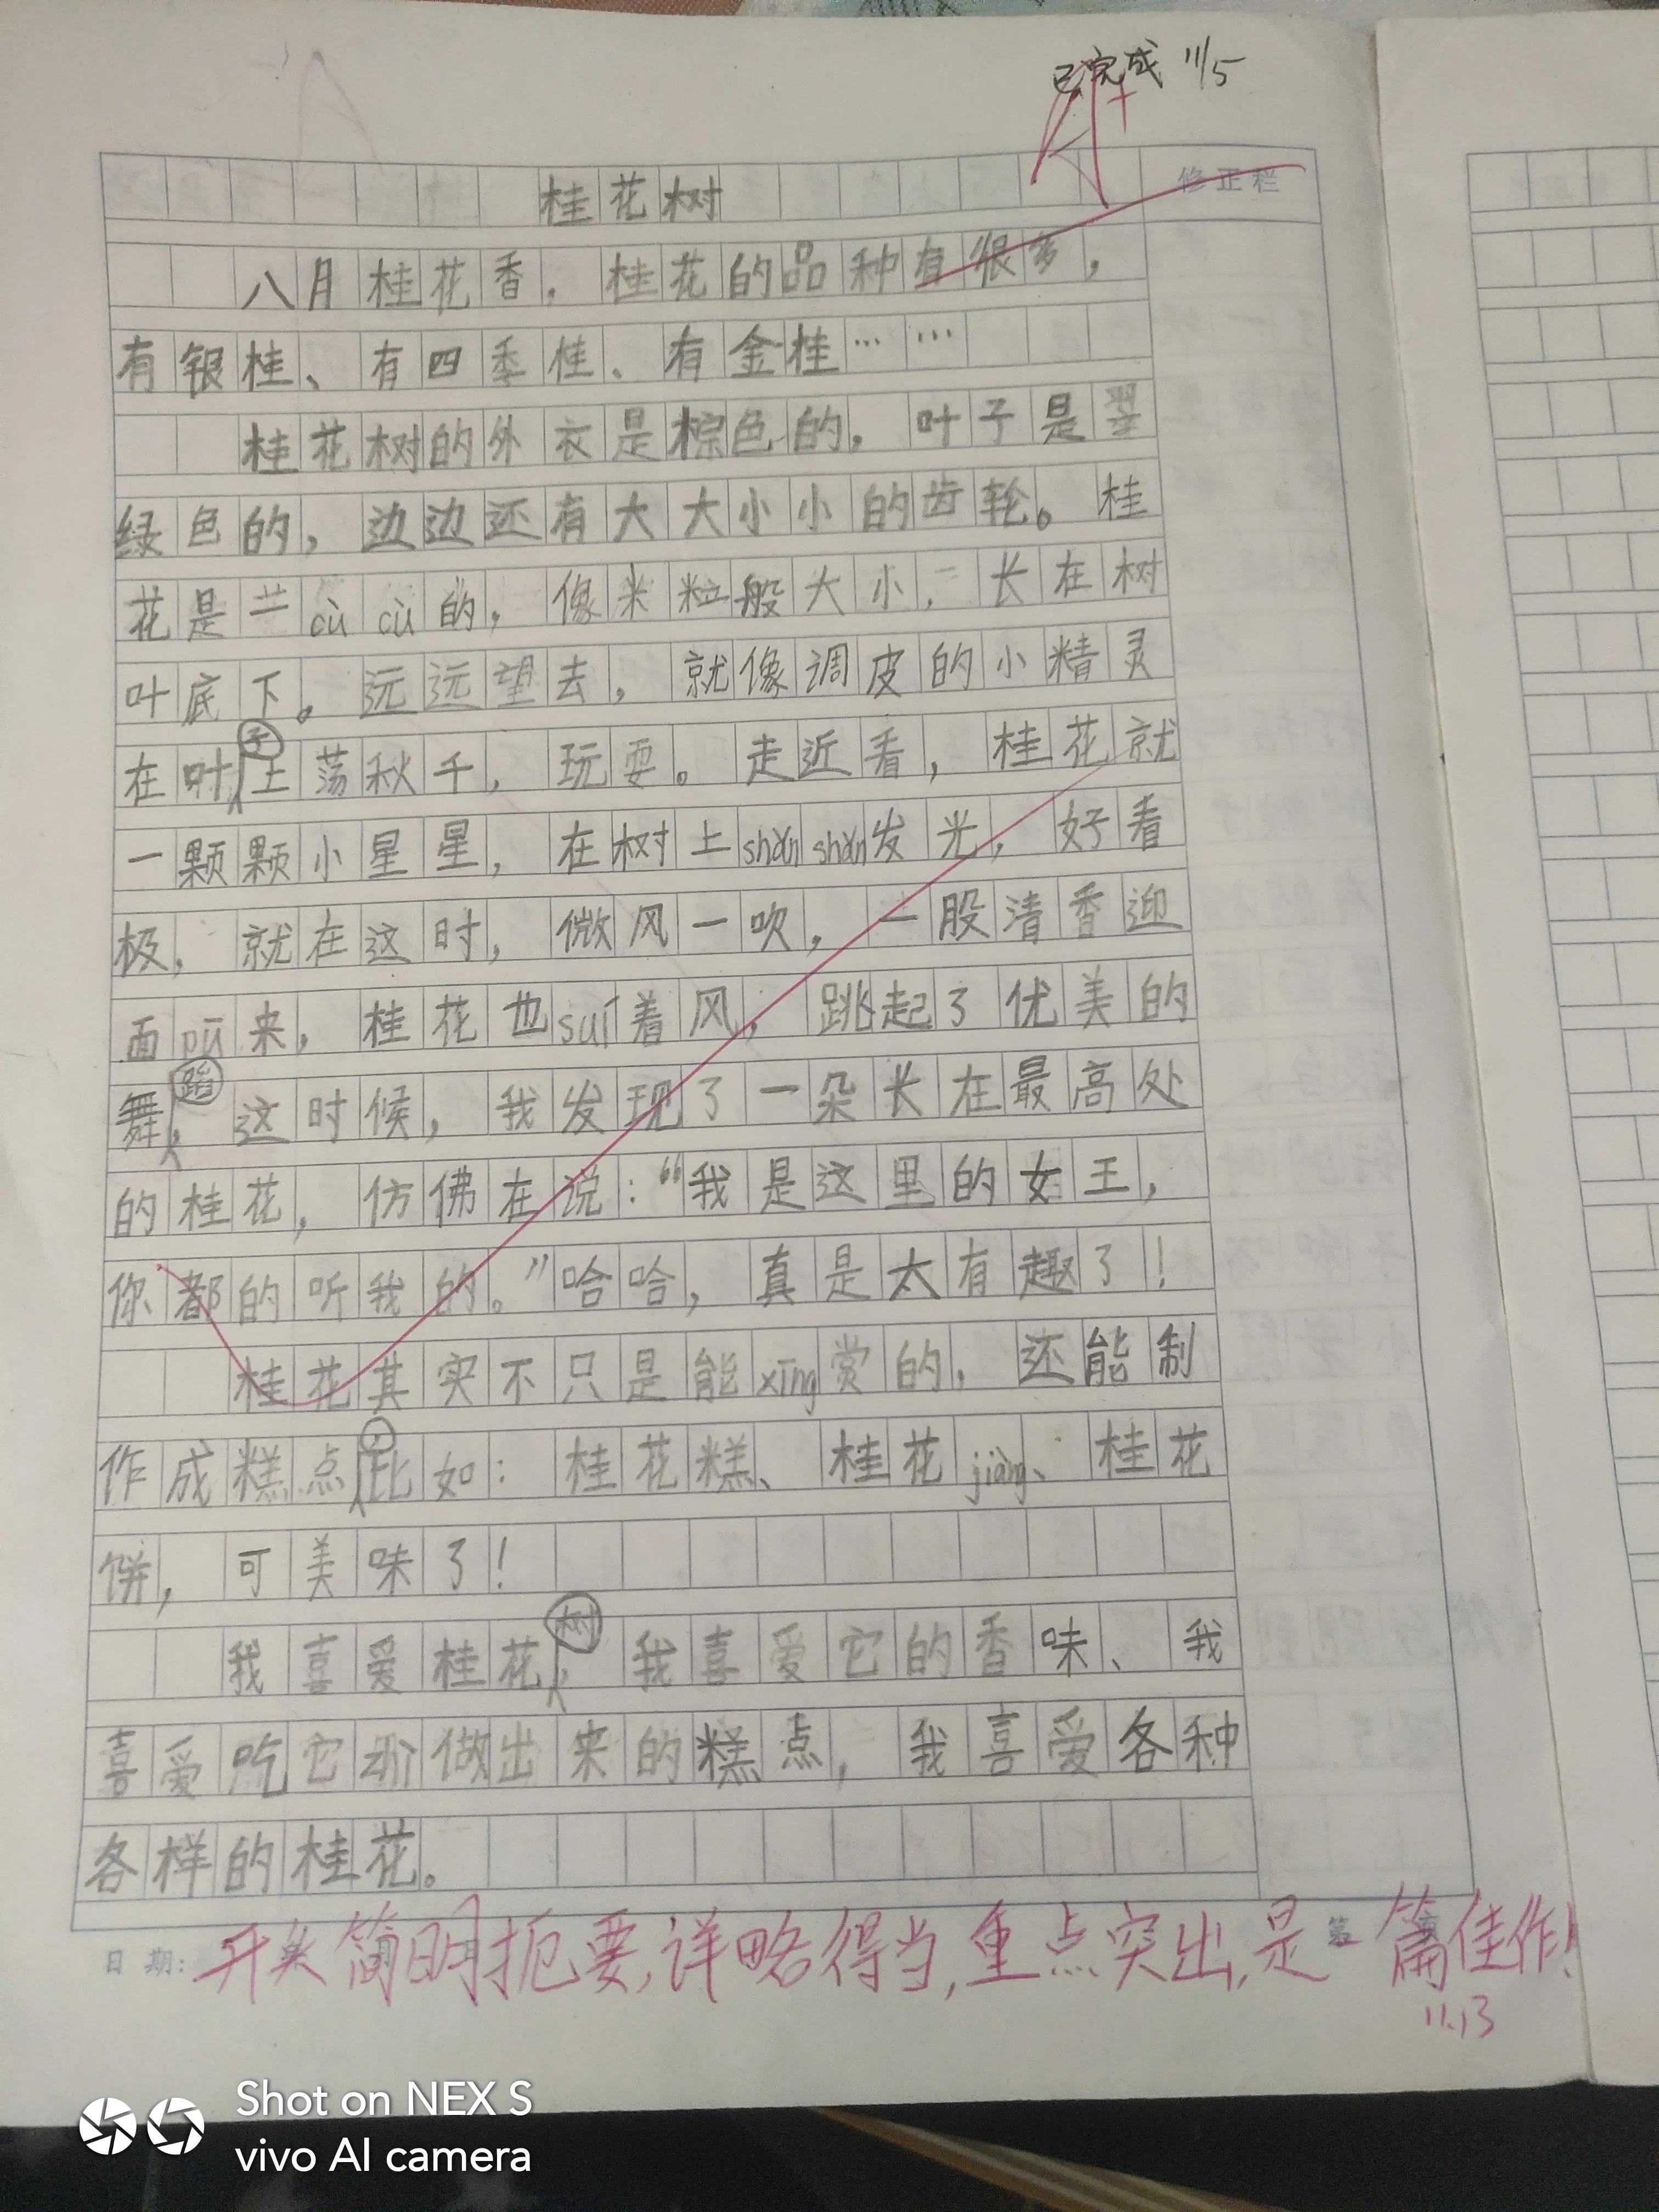 已完成 11/5
A+
修正栏
桂花树
八月桂花香，桂花的品种有很多，
有银桂、有四季桂、有金桂……
桂花树的外衣是棕色的，叶子是翠
绿色的，边边还有大大小小的齿轮。桂
花是一cù cù的，像米粒般大小，长在树
叶底下。远远望去，就像调皮的小精灵
在叶子上荡秋千，玩耍。走近看，桂花就
一颗颗小星星，在树上shǎn shǎn发光，好看
极，就在这时，微风一吹，一股清香迎
面pū来，桂花也suí着风，跳起了优美的
舞蹈，这时候，我发现了一朵长在最高处
的桂花，仿佛在说：“我是这里的女王，
你都的听我的。”哈哈，真是太有趣了！
桂花其实不只是能xīng赏的，还能制
作成糕点，比如：桂花糕、桂花jiàng、桂花
饼，可美味了！
我喜爱桂花树，我喜爱它的香味、我
喜爱吃它做出来的糕点，我喜爱各种
各样的桂花。
日期：
开头简明扼要，详略得当，重点突出，是一篇佳作！
11.13
Shot on NEX S
vivo AI camera